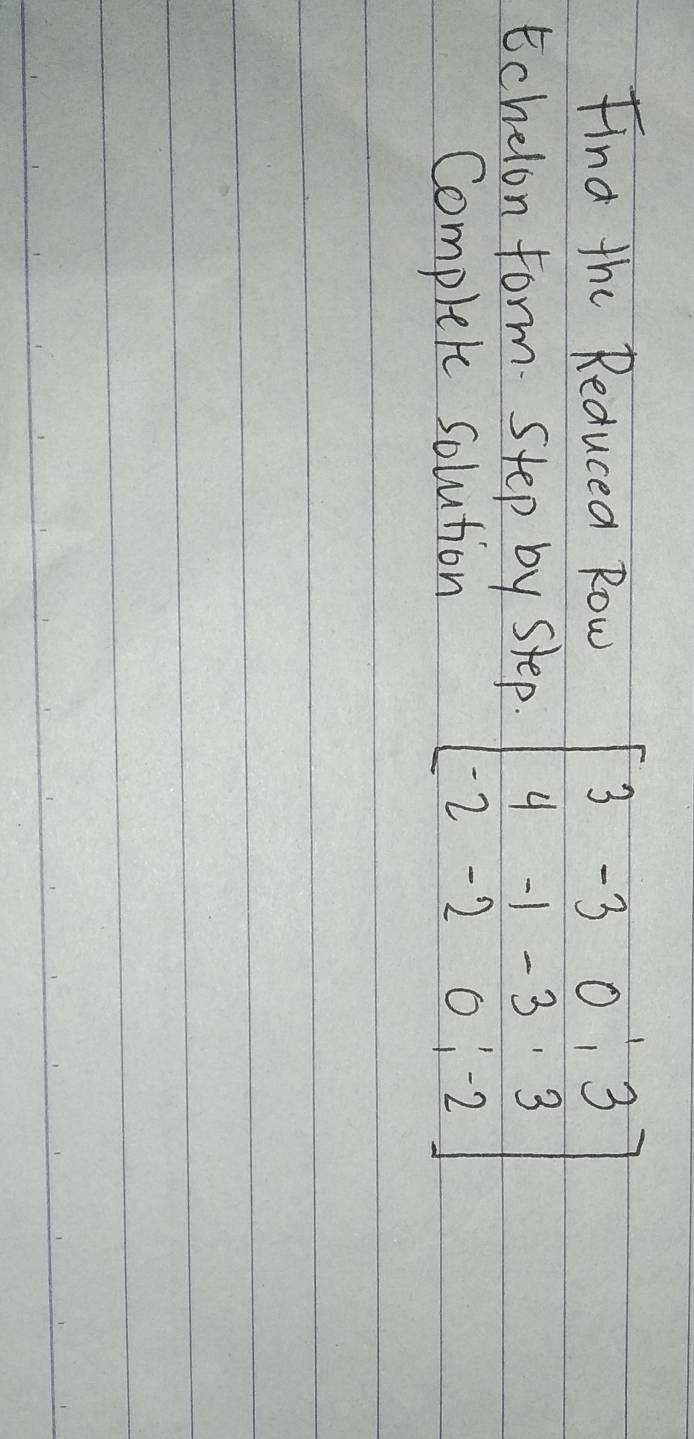 Find the Reduced Row
Echelon form. Step by Step.
Complete solution
3 -3 0 | 3
4 -1 -3 | 3
-2 -2 0 | -2